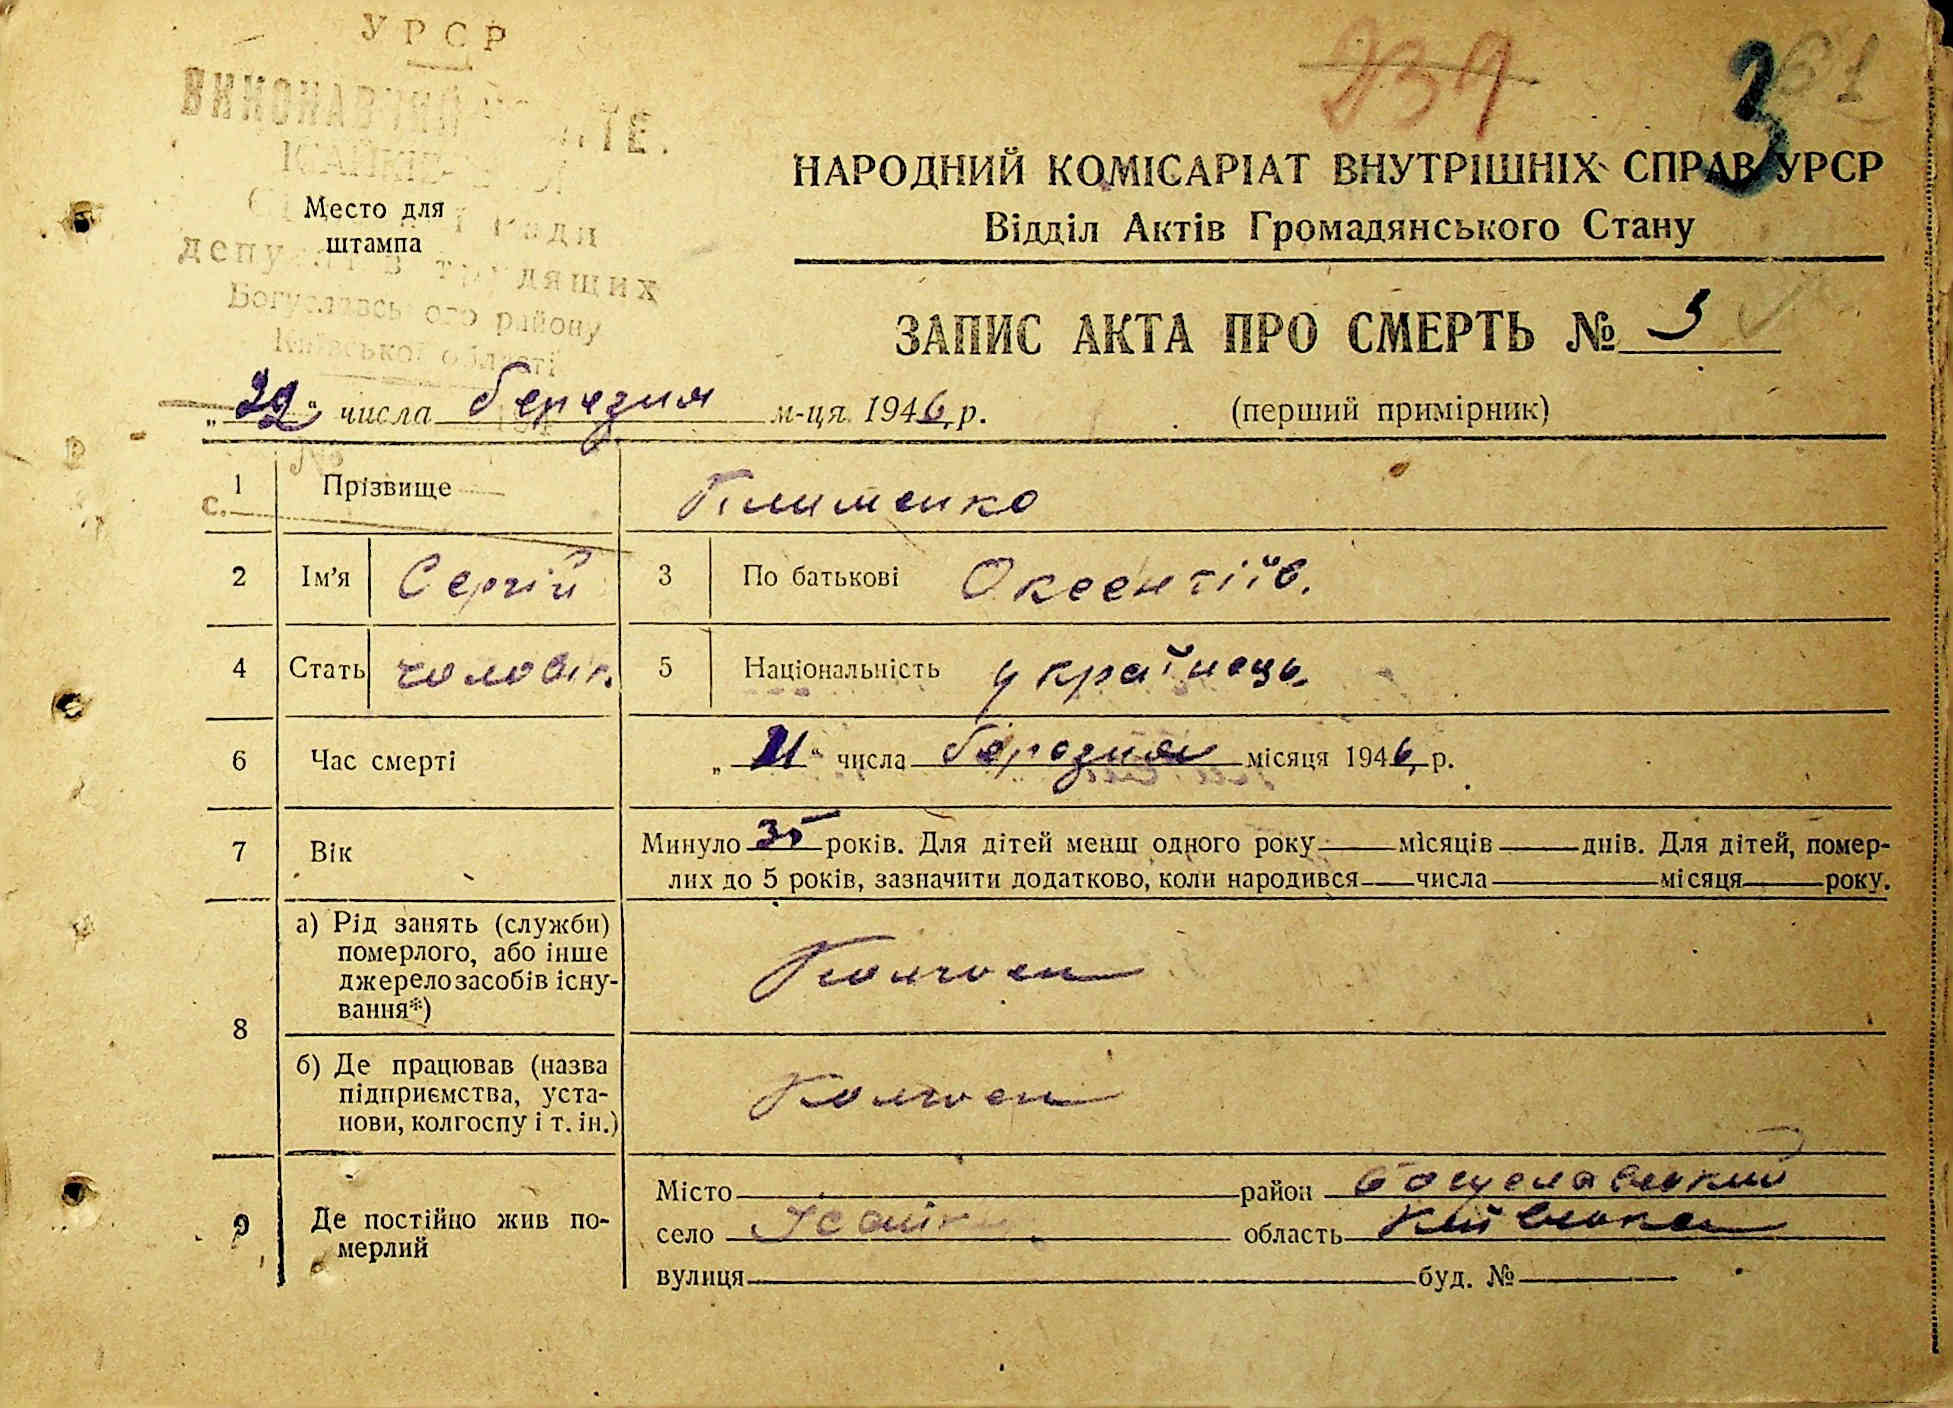 УРСР
239
3
61
ВИКОНАВЧИЙ
НАРОДНИЙ КОМІСАРІАТ ВНУТРІШНІХ СПРАВ УРСР
Место для
штампа
Відділ Актів Громадянського Стану
трудящих
Богуславського району
Київської області
ЗАПИС АКТА ПРО СМЕРТЬ № 3
„22“ числа березня м-ця 1946 р. (перший примірник)
№
1 Прізвище Клименко
с.
2 Ім’я Сергій 3 По батькові
4 Стать чоловік. 5 Національність українець.
6 Час смерті „21“ числа березня місяця 1946 р.
7 Вік Минуло 35 років. Для дітей менш одного року місяців днів. Для дітей, помер-
лих до 5 років, зазначити додатково, коли народився числа місяця року.
8 а) Рід занять (служби)
померлого, або інше
джерело засобів існу-
вання*)
б) Де працював (назва
підприємства, уста-
нови, колгоспу і т. ін.)
9 Де постійно жив по-
мерлий
Місто район Богуславський
село Ісайки область Київська
вулиця буд. №